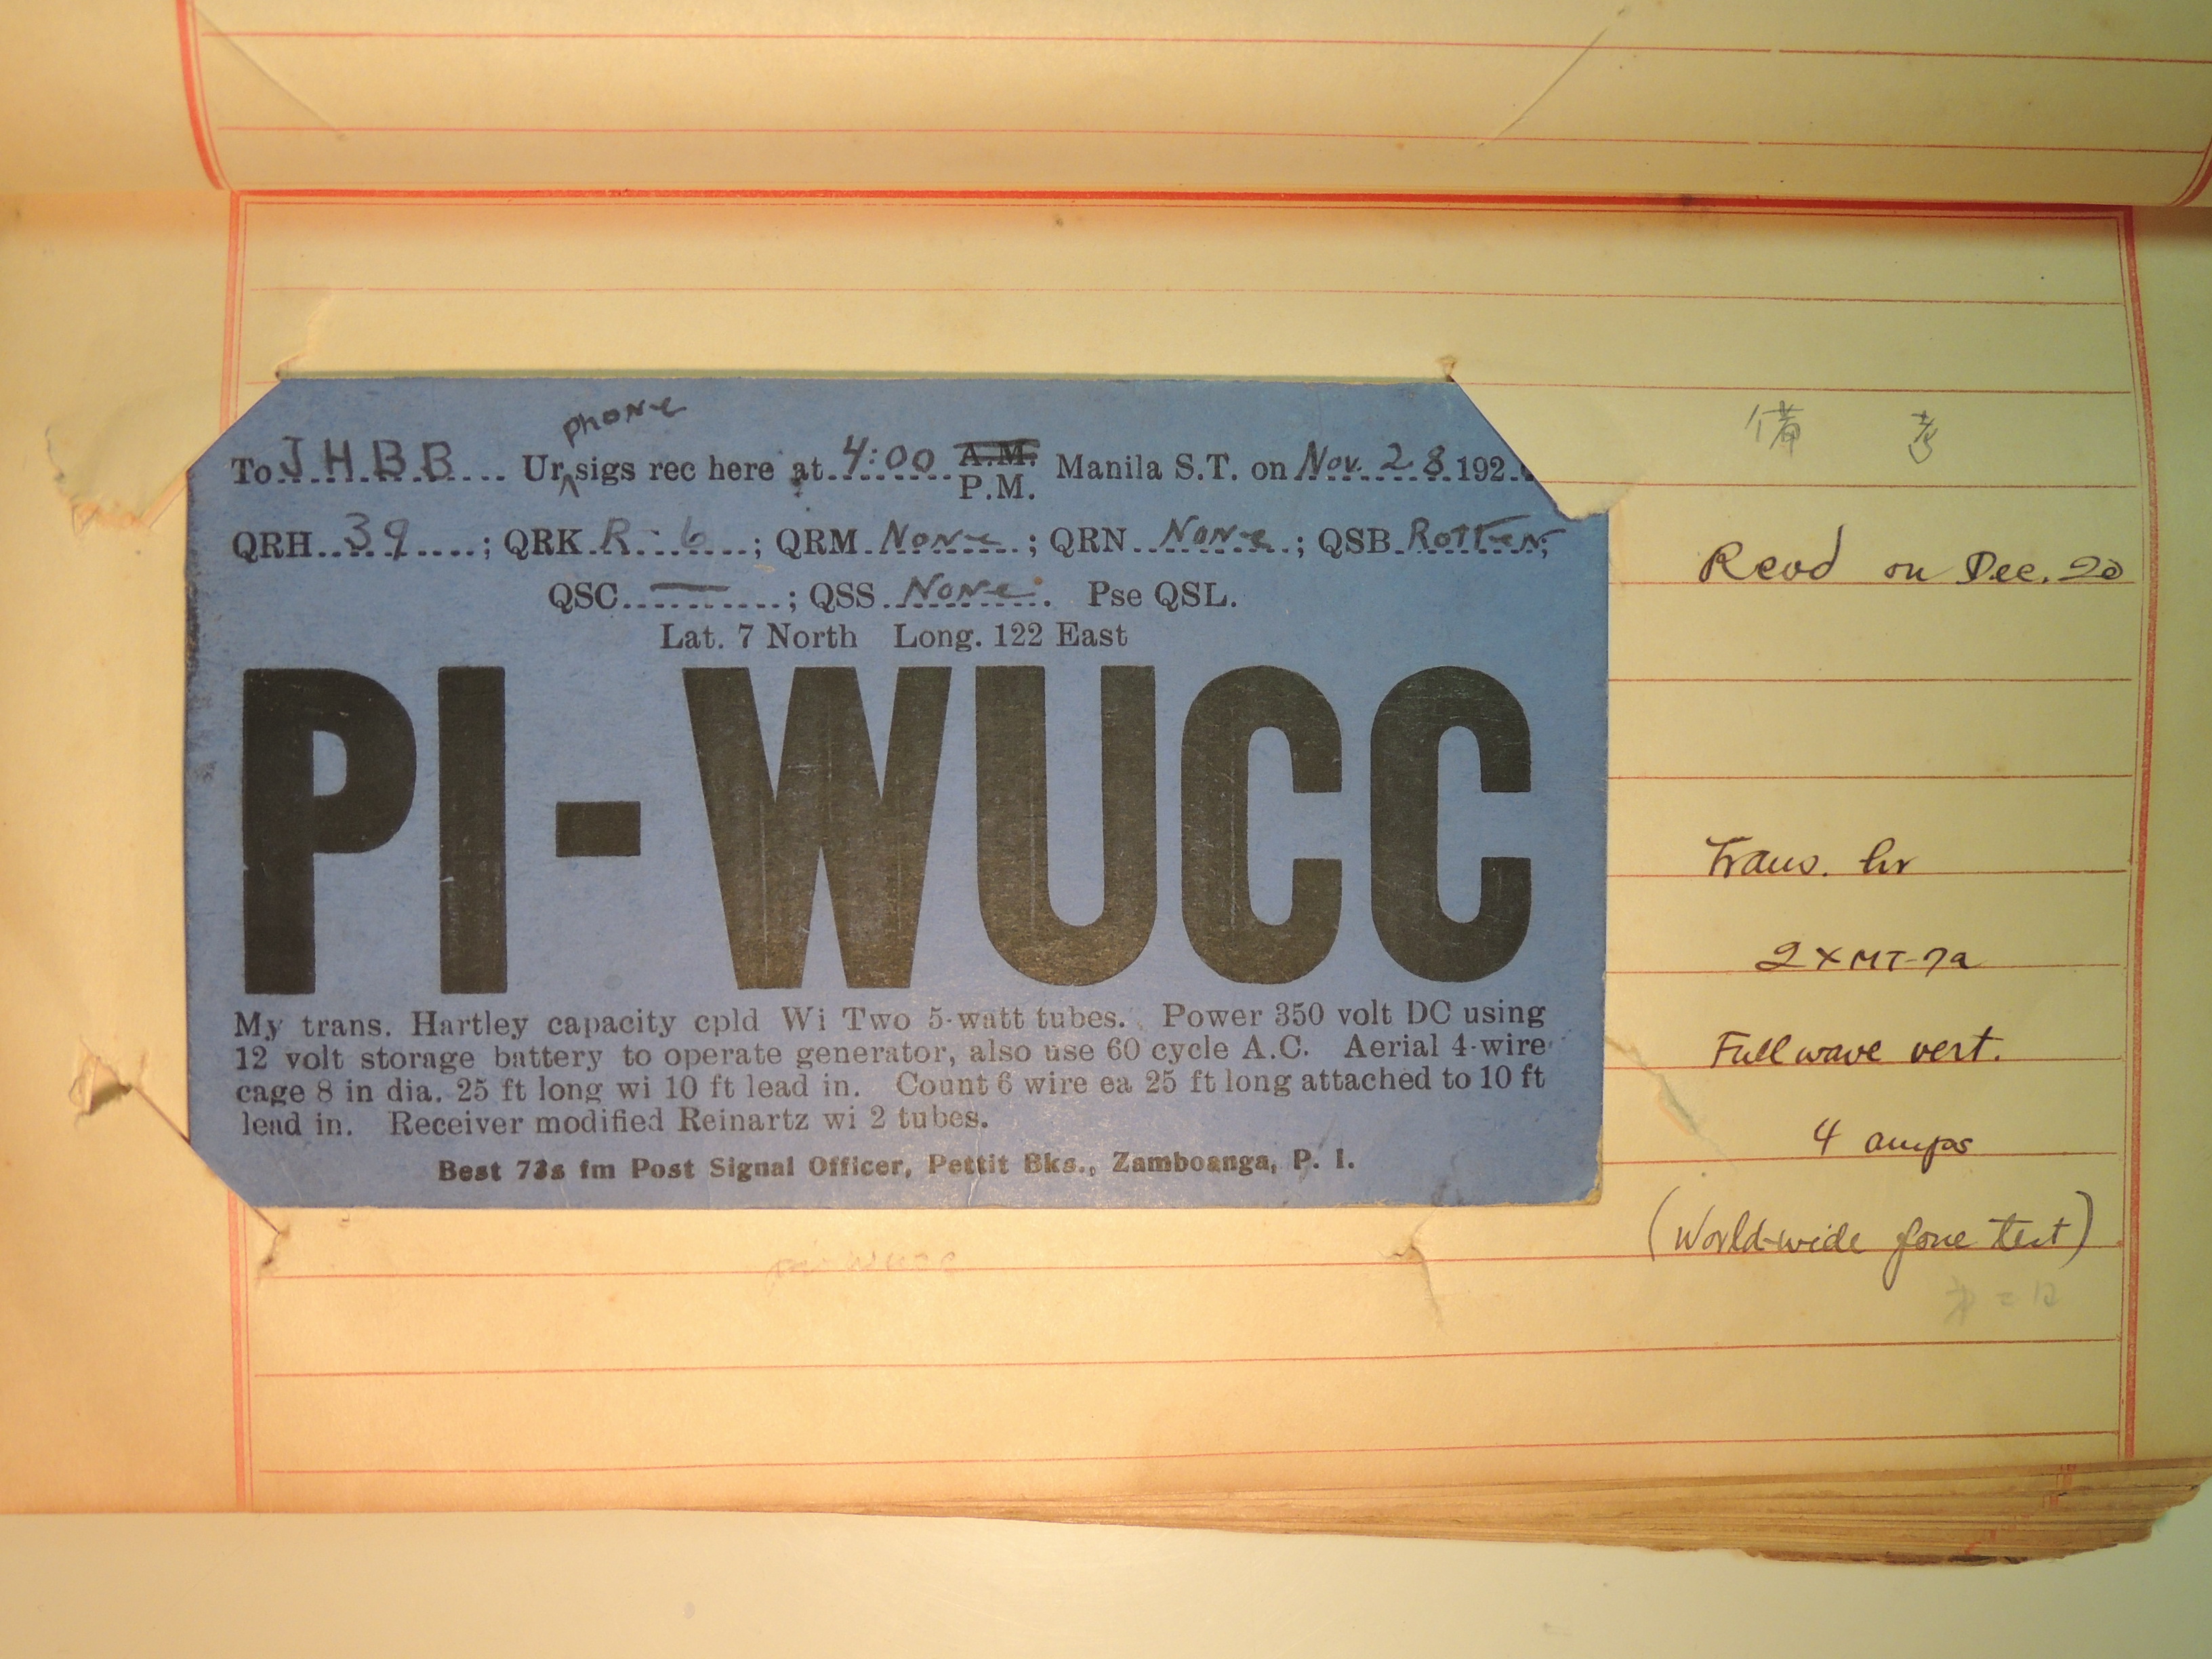 phone
To JHBB Ur sigs rec here at 4:00 A.M. P.M. Manila S.T. on Nov. 28 192
QRH 39; QRK R-6; QRM None; QRN None; QSB Rotten;
QSC —; QSS None. Pse QSL.
Lat. 7 North Long. 122 East
PI-WUCC
My trans. Hartley capacity cpld Wi Two 5-watt tubes. Power 350 volt DC using
12 volt storage battery to operate generator, also use 60 cycle A.C. Aerial 4-wire
cage 8 in dia. 25 ft long wi 10 ft lead in. Count 6 wire ea 25 ft long attached to 10 ft
lead in. Receiver modified Reinartz wi 2 tubes.
Best 73s fm Post Signal Officer, Pettit Bks., Zamboanga, P. I.
pi-WUCC
備 考
Recd on Dec. 20
Trans. hr
2 x MT-7a
Full wave vert.
4 amps
(World-wide fone test)